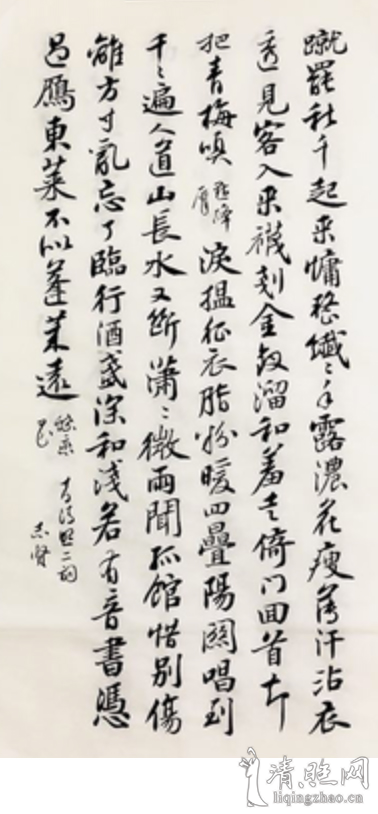 蹴罷秋千起来慵整纖々手露濃花瘦薄汗沾衣
透見客入来襪刬金釵溜和羞走倚门回首却
把青梅嗅 點絳唇 淚搵征衣脂粉暖四疊陽關唱到
千々遍人道山長水又斷瀟々微雨聞孤館惜别傷
離方寸亂忘了臨行酒盞深和淺若有音書憑
過鴈東萊不似蓬萊遠
二詞
清照网
liqingzhao.cn